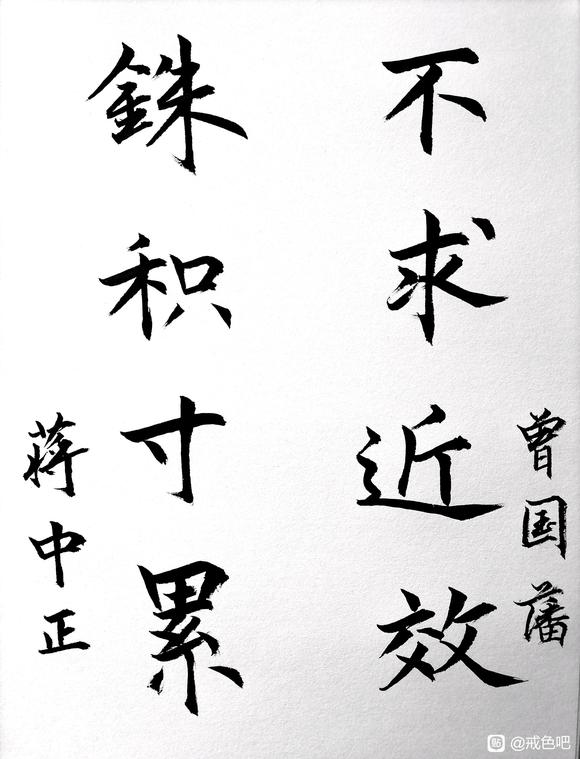 曾国藩
不求近效
銖积寸累
蒋中正
貼 @戒色吧